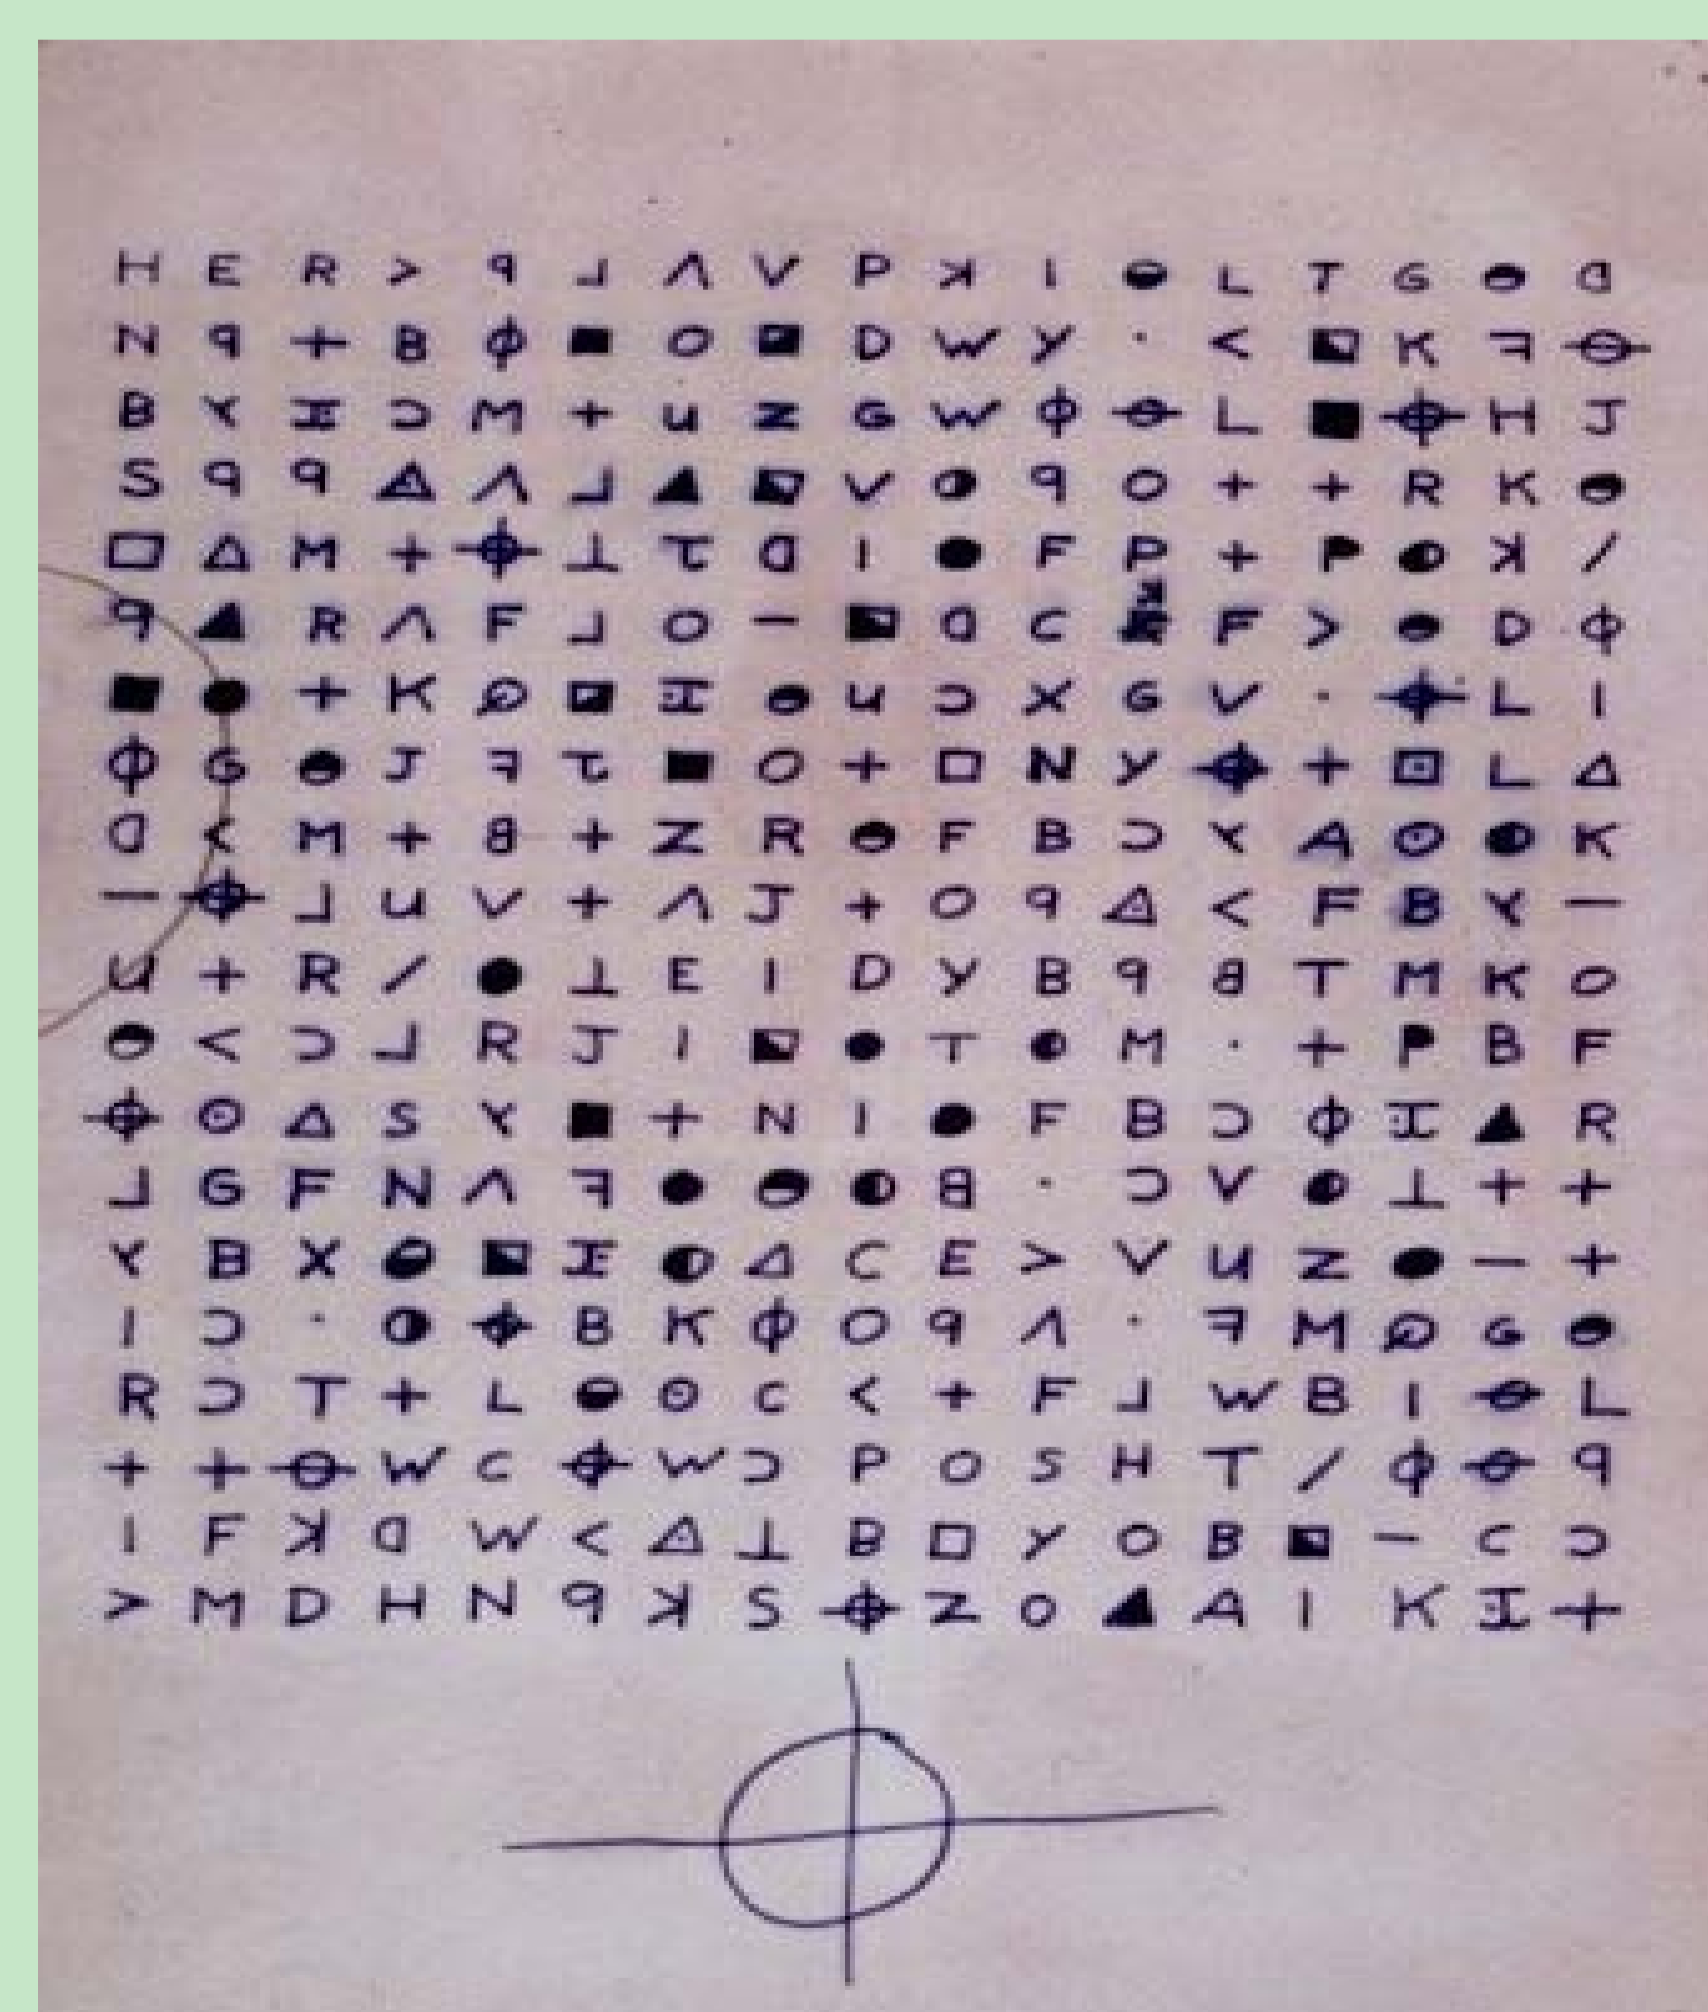 H E R > ꟼ ⅃ Λ V P ꓘ I ◒ L T G ◒ ᗡ
N ꟼ + B ϕ ■ O ◪ D W Y · < ◪ K ꟻ ⊖
B ⅄ Ɪ Ɔ M + U Z G W ϕ ⊖ L ■ ⌖ H J
S ꟼ ꟼ ◬ Λ ⅃ ◢ ◪ V ◑ ꟼ O + + R K ◒
□ △ M + ⌖ ⊥ τ ᗡ I ● F P + P ◐ ꓘ /
ꟼ ◢ R Λ F ⅃ O — ◪ ᗡ C ꓘ F > ◒ D ϕ
■ ● + K ⌮ ◪ Ɪ ◒ U Ɔ X G V · ⌖ L I
ϕ G ◒ J ꟻ τ ■ O + □ N Y ⌖ + ⊡ L △
ᗡ < M + 8 + Z R ◒ F B Ɔ ⅄ A ⊙ ◐ K
— ⌖ ⅃ U V + Λ J + O ꟼ ◬ < F B ⅄ —
U + R / ● ⊥ E I D Y B ꟼ 8 T M K O
◒ < Ɔ ⅃ R J I ◪ ● T ◐ M · + P B F
⌖ ⊙ △ S ⅄ ■ + N I ● F B Ɔ ϕ Ɪ ◢ R
⅃ G F N Λ ꟻ ● ◒ ◐ 8 · Ɔ V ◐ ⊥ + +
⅄ B X ◒ ◪ Ɪ ◐ △ C E > V U Z ● — +
I Ɔ · ◑ ⌖ B K ϕ O ꟼ Λ · ꟻ M ⌮ G ◒
R Ɔ T + L ◒ ⊙ C < + F ⅃ W B I ⊖ L
+ + ⊖ W C ⌖ W Ɔ P O S H T / ϕ ⊖ ꟼ
I F ꓘ ᗡ W < ◬ ⊥ B □ Y O B ◪ — C Ɔ
> M D H N ꟼ ꓘ S ⌖ Z O ◢ A I K Ɪ +
⌖